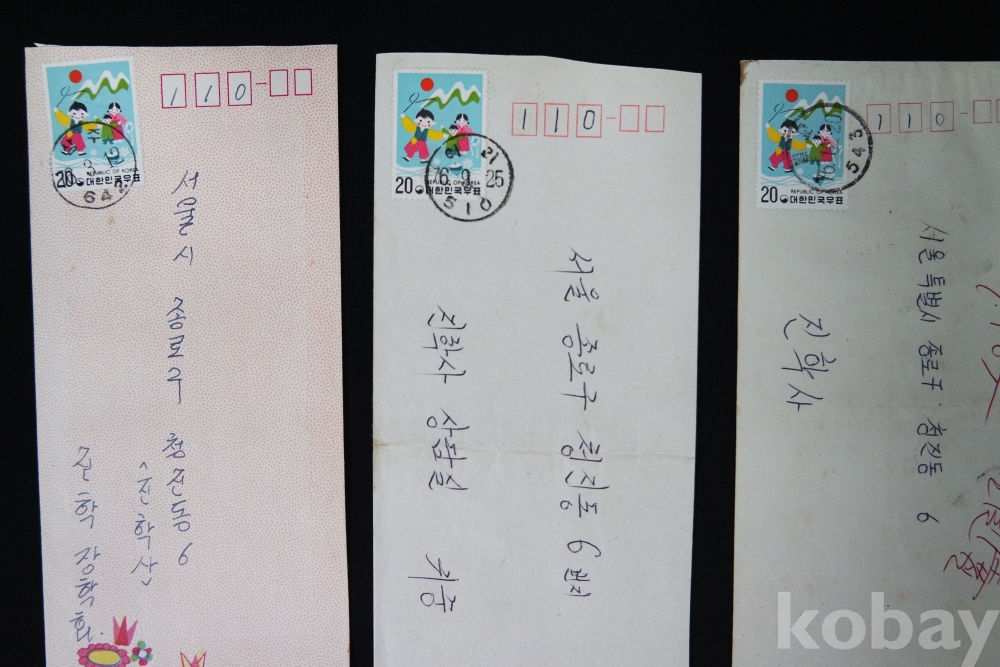 110
REPUBLIC OF KOREA
20 대한민국우표
643
서울시 종로구 청진동 6
<진학사>
진학 장학회
110
REPUBLIC OF KOREA
20 대한민국우표
이리
76.9.25
510
서울 종로구 청진동 6번지
진학사 상담실 귀중
110
REPUBLIC OF KOREA
20 대한민국우표
543
서울 특별시 종로구 청진동 6
진학사
kobay